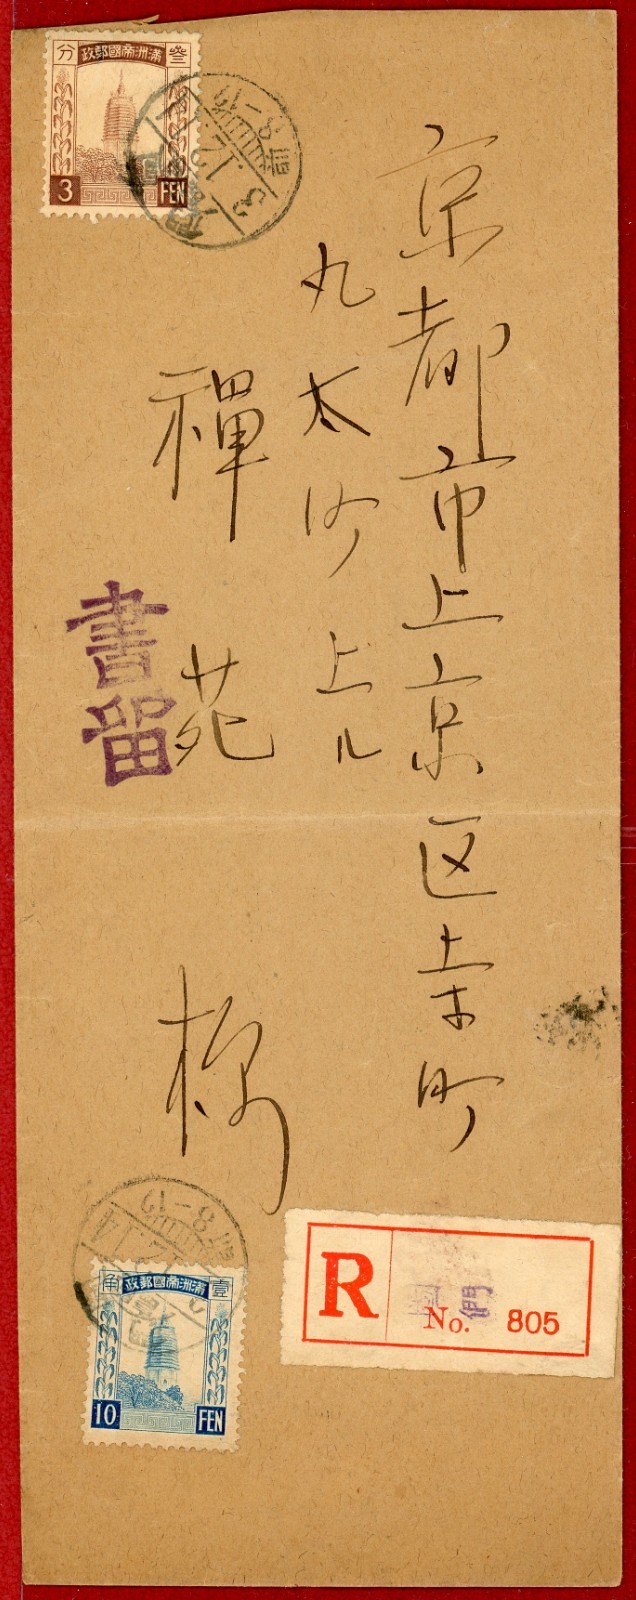 叁分
滿洲帝國郵政
3 FEN
京都市上京区上本町
丸太町上ル
禪苑 様
書留
R 圖們 No. 805
壹角
滿洲帝國郵政
10 FEN